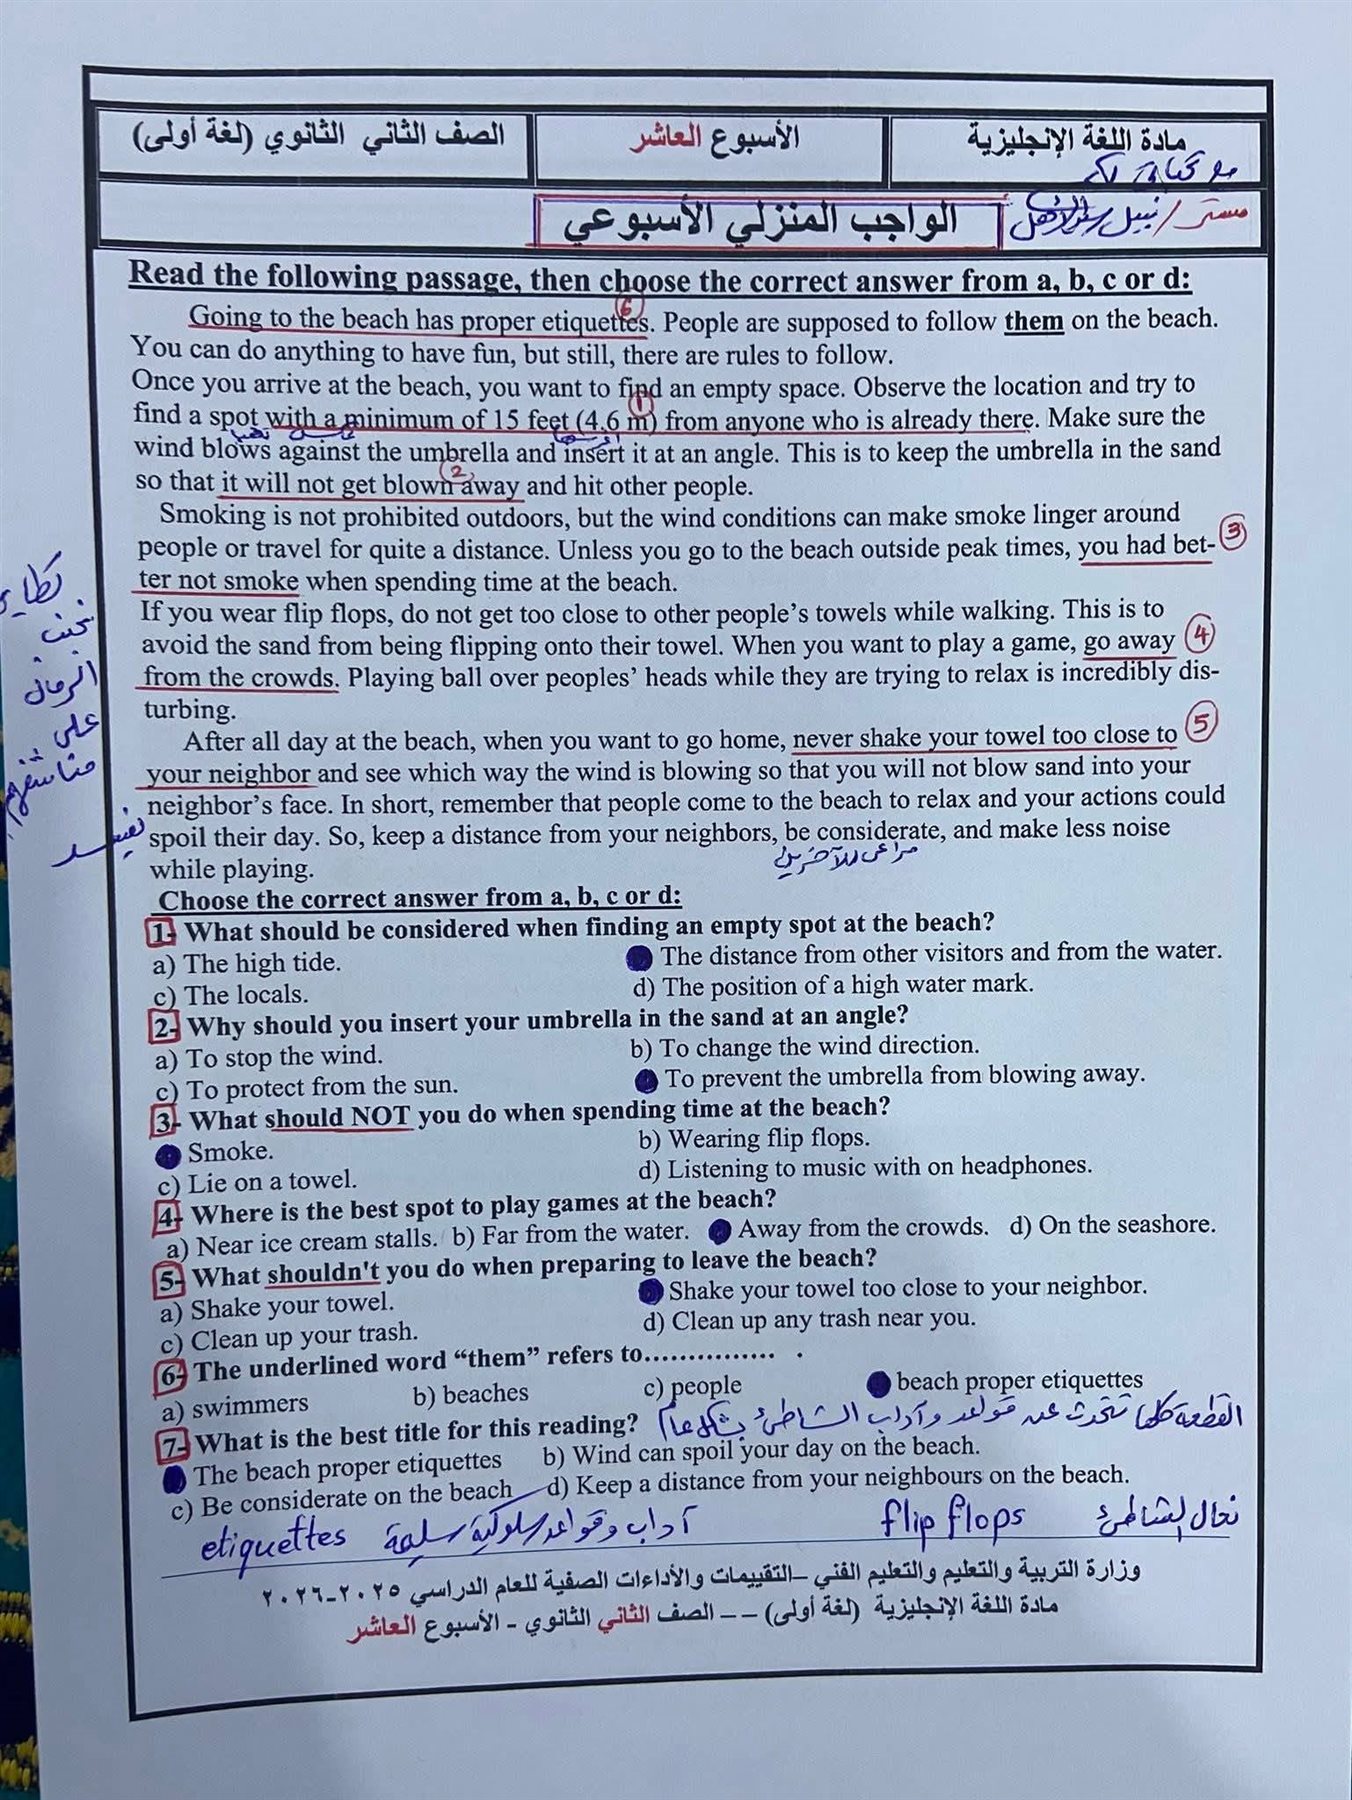 مادة اللغة الإنجليزية
الأسبوع العاشر
الصف الثاني الثانوي (لغة أولى)
مع تحياتى لكم
مستر/ نبيل
الواجب المنزلي الأسبوعي
Read the following passage, then choose the correct answer from a, b, c or d:
6
Going to the beach has proper etiquettes. People are supposed to follow them on the beach.
You can do anything to have fun, but still, there are rules to follow.
Once you arrive at the beach, you want to find an empty space. Observe the location and try to
1
find a spot with a minimum of 15 feet (4.6 m) from anyone who is already there. Make sure the
wind blows against the umbrella and insert it at an angle. This is to keep the umbrella in the sand
2
so that it will not get blown away and hit other people.
Smoking is not prohibited outdoors, but the wind conditions can make smoke linger around
people or travel for quite a distance. Unless you go to the beach outside peak times, you had bet- 3
ter not smoke when spending time at the beach.
If you wear flip flops, do not get too close to other people’s towels while walking. This is to
avoid the sand from being flipping onto their towel. When you want to play a game, go away 4
from the crowds. Playing ball over peoples’ heads while they are trying to relax is incredibly dis-
turbing.
تجنب
الرمال
على
After all day at the beach, when you want to go home, never shake your towel too close to 5
your neighbor and see which way the wind is blowing so that you will not blow sand into your
neighbor’s face. In short, remember that people come to the beach to relax and your actions could
spoil their day. So, keep a distance from your neighbors, be considerate, and make less noise
while playing.
مراعى للآخرين
Choose the correct answer from a, b, c or d:
1- What should be considered when finding an empty spot at the beach?
a) The high tide. The distance from other visitors and from the water.
c) The locals. d) The position of a high water mark.
2- Why should you insert your umbrella in the sand at an angle?
a) To stop the wind. b) To change the wind direction.
c) To protect from the sun. To prevent the umbrella from blowing away.
3- What should NOT you do when spending time at the beach?
Smoke. b) Wearing flip flops.
c) Lie on a towel. d) Listening to music with on headphones.
4- Where is the best spot to play games at the beach?
a) Near ice cream stalls. b) Far from the water. Away from the crowds. d) On the seashore.
5- What shouldn't you do when preparing to leave the beach?
a) Shake your towel. Shake your towel too close to your neighbor.
c) Clean up your trash. d) Clean up any trash near you.
6- The underlined word “them” refers to............... .
a) swimmers b) beaches c) people beach proper etiquettes
7- What is the best title for this reading? القطعة كلها تتحدث عن قواعد وآداب الشاطئ بشكل عام
The beach proper etiquettes b) Wind can spoil your day on the beach.
c) Be considerate on the beach d) Keep a distance from your neighbours on the beach.
etiquettes آداب وقواعد سلوكية سليمة flip flops نعال الشاطئ
وزارة التربية والتعليم والتعليم الفني –التقييمات والأداءات الصفية للعام الدراسي ٢٠٢٥-٢٠٢٦
مادة اللغة الإنجليزية (لغة أولى) – – الصف الثاني الثانوي - الأسبوع العاشر